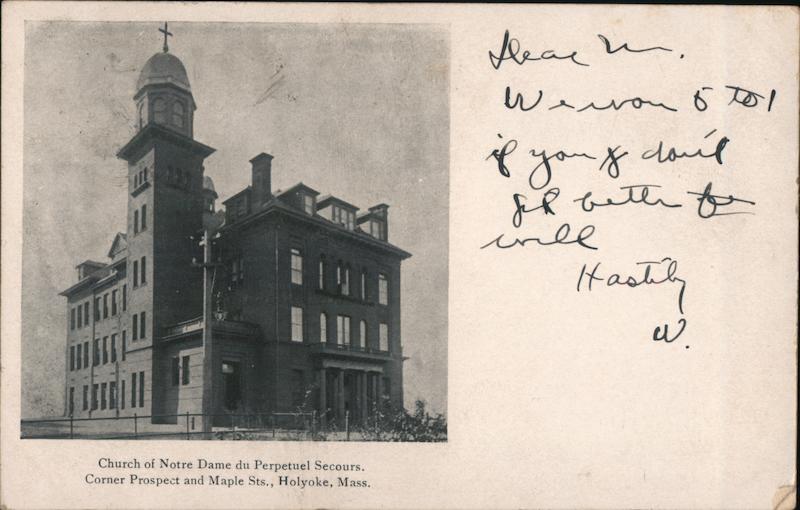 Dear M.
We won 5 to 1
if you & don't
get better
will
Hastily
W.
Church of Notre Dame du Perpetuel Secours.
Corner Prospect and Maple Sts., Holyoke, Mass.